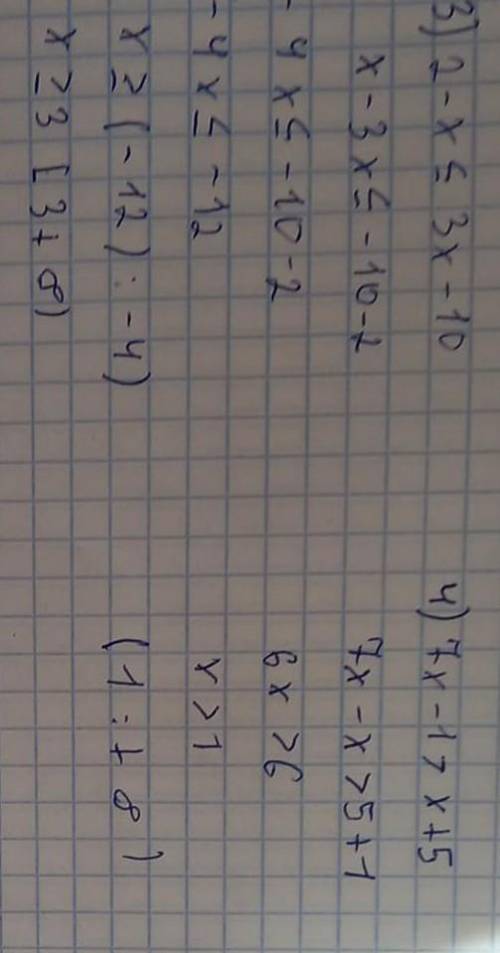 3) 2 - x ≤ 3x - 10
x - 3x ≤ - 10 - 2
- 4x ≤ - 10 - 2
- 4x ≤ - 12
x ≥ (- 12) : - 4)
x ≥ 3 [3 + ∞)
4) 7x - 1 > x + 5
7x - x > 5 + 1
6x > 6
x > 1
(1 : + ∞)